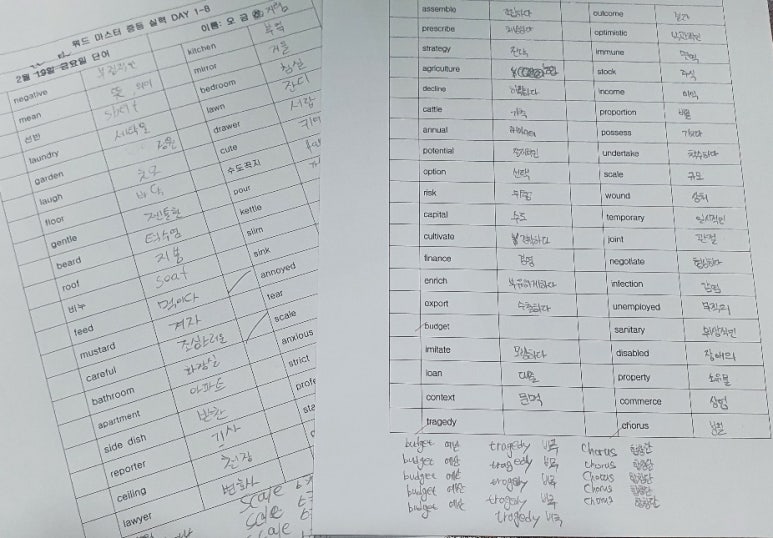 워드 마스터 중등 실력 DAY 1~8
2월 19일 금요일 단어 이름: 오
negative 부정적인 kitchen 부엌
mean 뜻 의미 mirror 거울
선반 bedroom 침실
laundry 세탁물 lawn 잔디
garden 정원 drawer 서랍
laugh cute
floor 바닥 수도꼭지
gentle 젠틀한 pour
beard 턱수염 kettle
roof 지붕 slim
비누 soap sink
feed 먹이다 annoyed
mustard 겨자 tear
careful 조심스러운 scale
bathroom 화장실 anxious
apartment 아파트 strict
side dish 반찬 profe
reporter 기사 sta
ceiling 천장
lawyer 변호사
scale
scale
scale
assemble outcome 결과
prescribe 처방하다 optimistic 낙관적인
strategy 전략 immune 면역
agriculture stock 주식
decline 거절하다 income
cattle 가축 proportion 비율
annual possess 가지다
potential 잠재적인 undertake 착수하다
option 선택 scale 규모
risk 위험 wound 상처
capital 수도 temporary 일시적인
cultivate 경작하다 joint 관절
finance negotiate 협상하다
enrich 부유하게하다 infection 감염
export 수출하다 unemployed
budget sanitary 위생적인
imitate 모방하다 disabled 장애의
loan 대출 property 소유물
context 문맥 commerce 상업
tragedy chorus
budget 예산 tragedy 비극 chorus 합창단
budget 예산 tragedy 비극 chorus 합창단
budget 예산 tragedy 비극 chorus 합창단
budget 예산 tragedy 비극 chorus 합창단
budget 예산 tragedy 비극 chorus 합창단
tragedy 비극